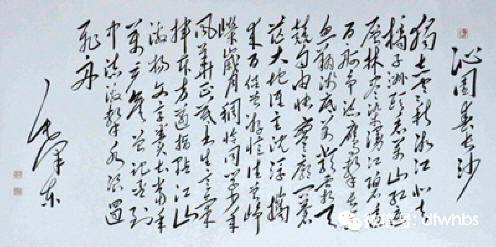 沁园春长沙
独立寒秋湘江北去
橘子洲头看万山红遍
层林尽染漫江碧透
百舸争流鹰击长
空鱼翔浅底万类霜天
竞自由怅寥廓问苍
茫大地谁主沉浮携
来百侣曾游忆往昔峥
嵘岁月稠恰同学少年
风华正茂书生意气
挥斥方遒指点江山
激扬文字粪土当年
万户侯曾记否到
中流击水浪遏
飞舟
毛泽东
微信号: dfwhbs